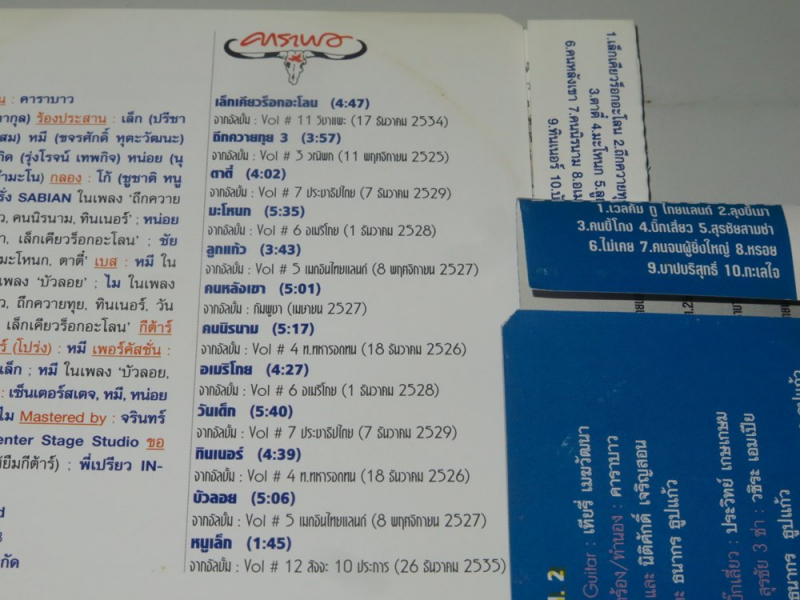 คาราบาว
เล็กเคียวร็อกอะโลน (4:47)
จากอัลบั้ม : Vol # 11 วิชาแพะ (17 ธันวาคม 2534)
ถึกควายทุย 3 (3:57)
จากอัลบั้ม : Vol # 3 วณิพก (11 พฤศจิกายน 2525)
ตาตี๋ (4:02)
จากอัลบั้ม : Vol # 7 ประชาธิปไตย (7 ธันวาคม 2529)
มะโหนก (5:35)
จากอัลบั้ม : Vol # 6 อเมริโกย (1 ธันวาคม 2528)
ลูกแก้ว (3:43)
จากอัลบั้ม : Vol # 5 เมดอินไทยแลนด์ (8 พฤศจิกายน 2527)
คนหลังเขา (5:01)
จากอัลบั้ม : กัมพูชา (เมษายน 2527)
คนนิรนาม (5:17)
จากอัลบั้ม : Vol # 4 ท.ทหารอดทน (18 ธันวาคม 2526)
อเมริโกย (4:27)
จากอัลบั้ม : Vol # 6 อเมริโกย (1 ธันวาคม 2528)
วันเด็ก (5:40)
จากอัลบั้ม : Vol # 7 ประชาธิปไตย (7 ธันวาคม 2529)
ทินเนอร์ (4:39)
จากอัลบั้ม : Vol # 4 ท.ทหารอดทน (18 ธันวาคม 2526)
บัวลอย (5:06)
จากอัลบั้ม : Vol # 5 เมดอินไทยแลนด์ (8 พฤศจิกายน 2527)
หนูเล็ก (1:45)
จากอัลบั้ม : Vol # 12 สัจจะ 10 ประการ (26 ธันวาคม 2535)
: คาราบาว
ร้องประสาน : เล็ก (ปรีชา
หมี (ขจรศักดิ์ หุตะวัฒนะ)
(รุ่งโรจน์ เทพกิจ) หน่อย (นุ
กลอง : โก้ (ชูชาติ หนู
SABIAN ในเพลง 'ถึกควาย
คนนิรนาม, ทินเนอร์' ; หน่อย
เล็กเคียวร็อกอะโลน' ; ชัย
มะโหนก, ตาตี๋' เบส : หมี ใน
เพลง 'บัวลอย' ; ไม ในเพลง
ถึกควายทุย, ทินเนอร์, วัน
เล็กเคียวร็อกอะโลน' กีต้าร์
(โปร่ง) : หมี เพอร์คัสชั่น :
เล็ก ; หมี ในเพลง 'บัวลอย,
: เซ็นเตอร์สเตจ, หมี, หน่อย
ไม Mastered by : จรินทร์
Center Stage Studio ขอ
ยืมกีต้าร์) ; พี่เปรียว IN-
1.เล็กเคียวร็อกอะโลน 2.ถึกควายทุย
3.ตาตี๋ 4.มะโหนก 5.ลูก
6.คนหลังเขา 7.คนนิรนาม 8.อเม
9.ทินเนอร์ 10.บัว
1.เวลคัม ทู ไทยแลนด์ 2.ลุงขี้เมา
3.คนขี้โกง 4.บิ๊กเสี่ยว 5.สุรชัยสามช่า
6.ไม่เคย 7.คนจนผู้ยิ่งใหญ่ 8.หรอย
9.บาปบริสุทธิ์ 10.ทะเลใจ
Guitar : เทียรี่ เมฆวัฒนา
ร้อง/ทำนอง : คาราบาว
และ นิติศักดิ์ เจริญสอน
ธนากร ฐูปแก้ว
บิ๊กเสี่ยว : ประวิทย์ เกษเกษม
สุรชัย 3 ช่า : วชิระ เอมเปีย
ธนากร ฐูปแก้ว